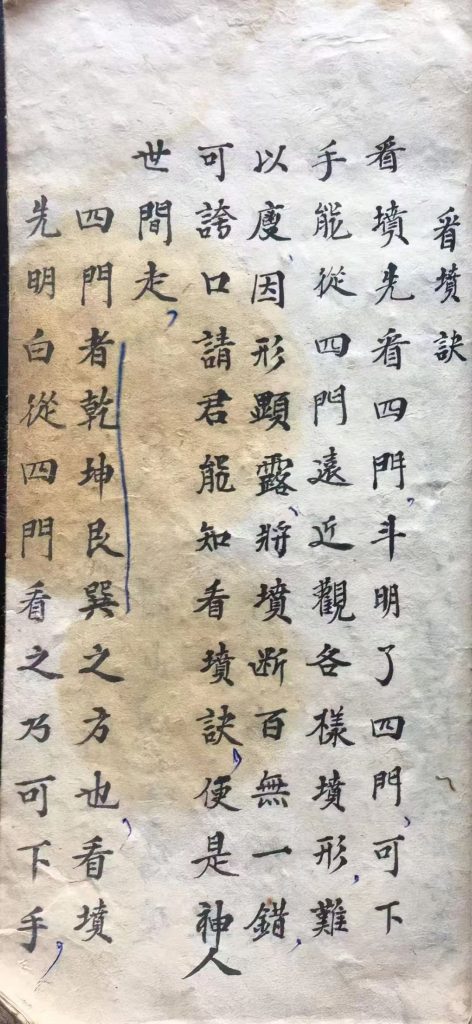 看墳訣
看墳先看四門，斗明了四門，可下
手能從四門遠近觀各樣墳形，難
以廋、因形顯露、將墳断百無一錯，
可誇口請君能知看墳訣，便是神人
世間走，
四門者乾坤艮巽之方也，看墳
先明白從四門看之乃可下手，